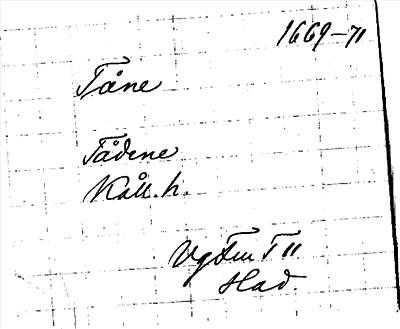 1669-71
Tåne
Tådene
Kåll. h.
Vg Fm I 11
Had.